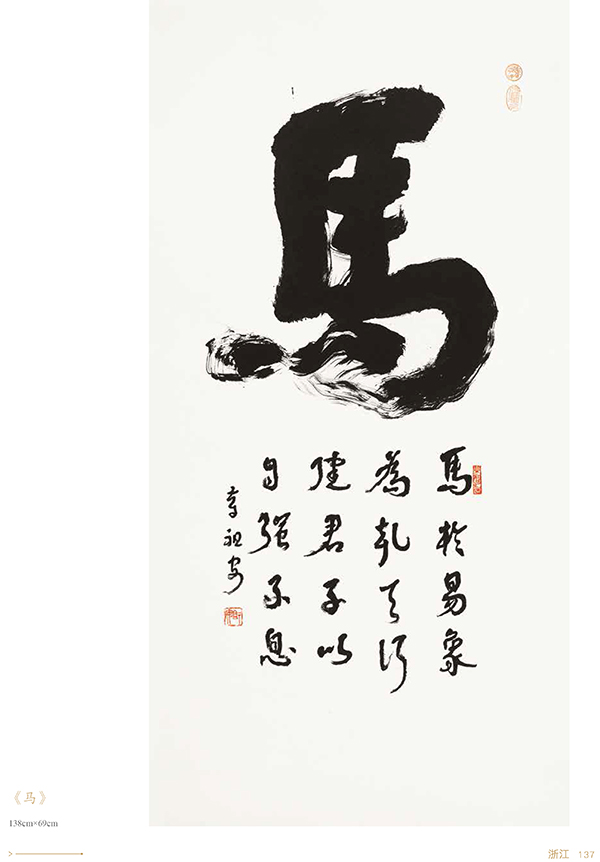 馬
馬於易象
為乾天行
健君子以
自强不息
章祖安
《马》
138cm×69cm
浙江 137